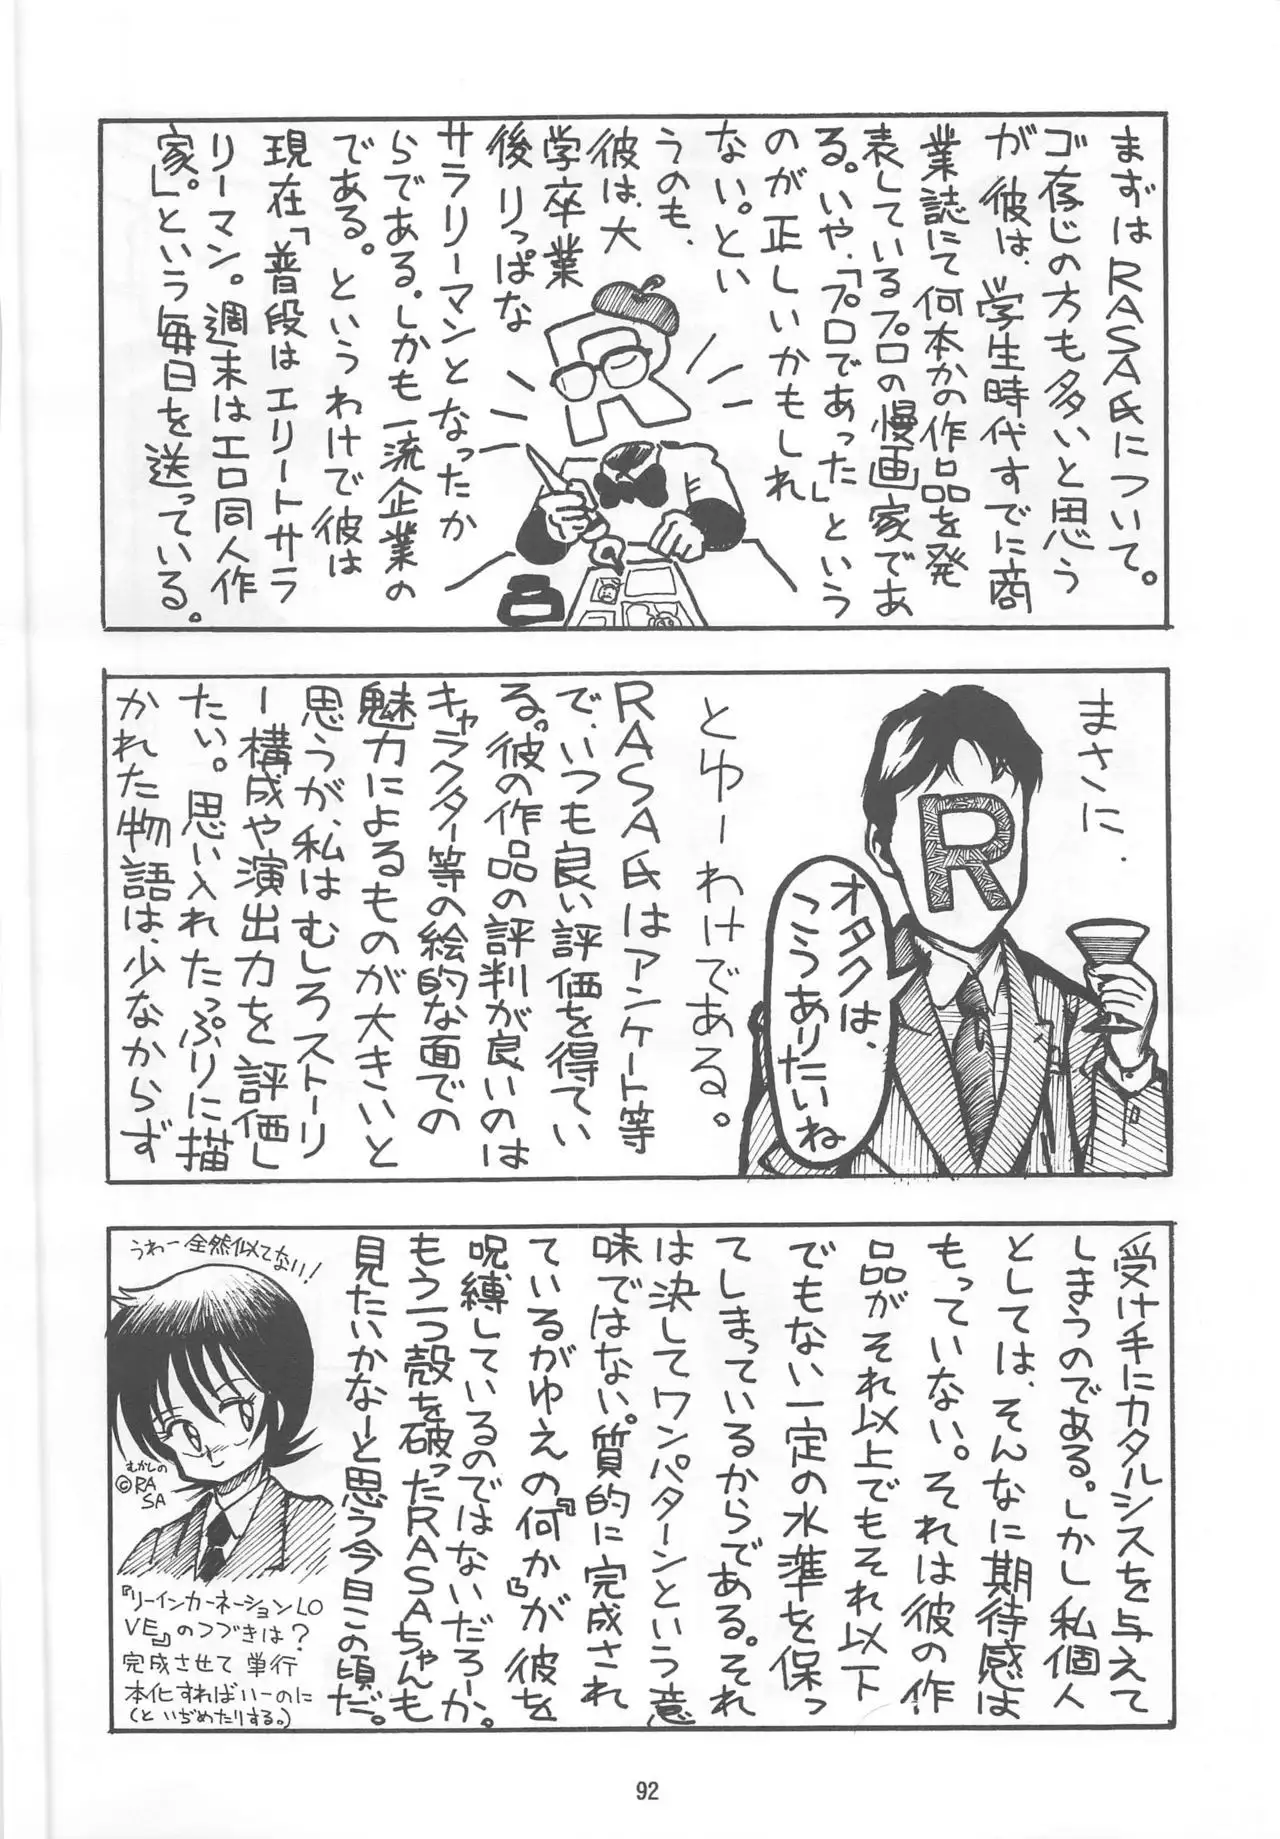 まずはRASA氏について。
ゴ存じの方も多いと思う
が 彼は、学生時代すでに商
業誌にて何本かの作品を発
表しているプロの漫画家であ
る。いや、「プロであった」という
のが正しいかもしれ
ない。とい
うのも、
彼は、大
学卒業
後 りっぱな
サラリーマンとなったか
らである。しかも一流企業の
である。というわけで彼は
現在「普段はエリートサラ
リーマン。週末はエロ同人作
家。」という毎日を送っている。
R
まさに、
R
オタクは、
こうありたいね
とゆーわけである。
RASA氏はアンケート等
で、いつも良い評価を得てい
る。彼の作品の評判が良いのは
キャラクター等の絵的な面での
魅力によるものが大きいと
思うが、私はむしろストーリ
ー構成や演出力を評価し
たい。思い入れたっぷりに描
かれた物語は、少なからず
受け手にカタルシスを与えて
しまうのである。しかし私個人
としては、そんなに期待感は
もっていない。それは彼の作
品がそれ以上でもそれ以下
でもない一定の水準を保っ
てしまっているからである。それ
は決してワンパターンという意
味ではない。質的に完成され
ているがゆえの『何か』が彼を
呪縛しているのではないだろーか。
もう一つ殻を破ったRASAちゃんも
見たいかなーと思う今日この頃だ。
うわー全然似てない!
むかしの
©RA
SA
『リーインカーネーションLO
VE』のつづきは?
完成させて 単行
本化すればいーのに
(といぢめたりする。)
92